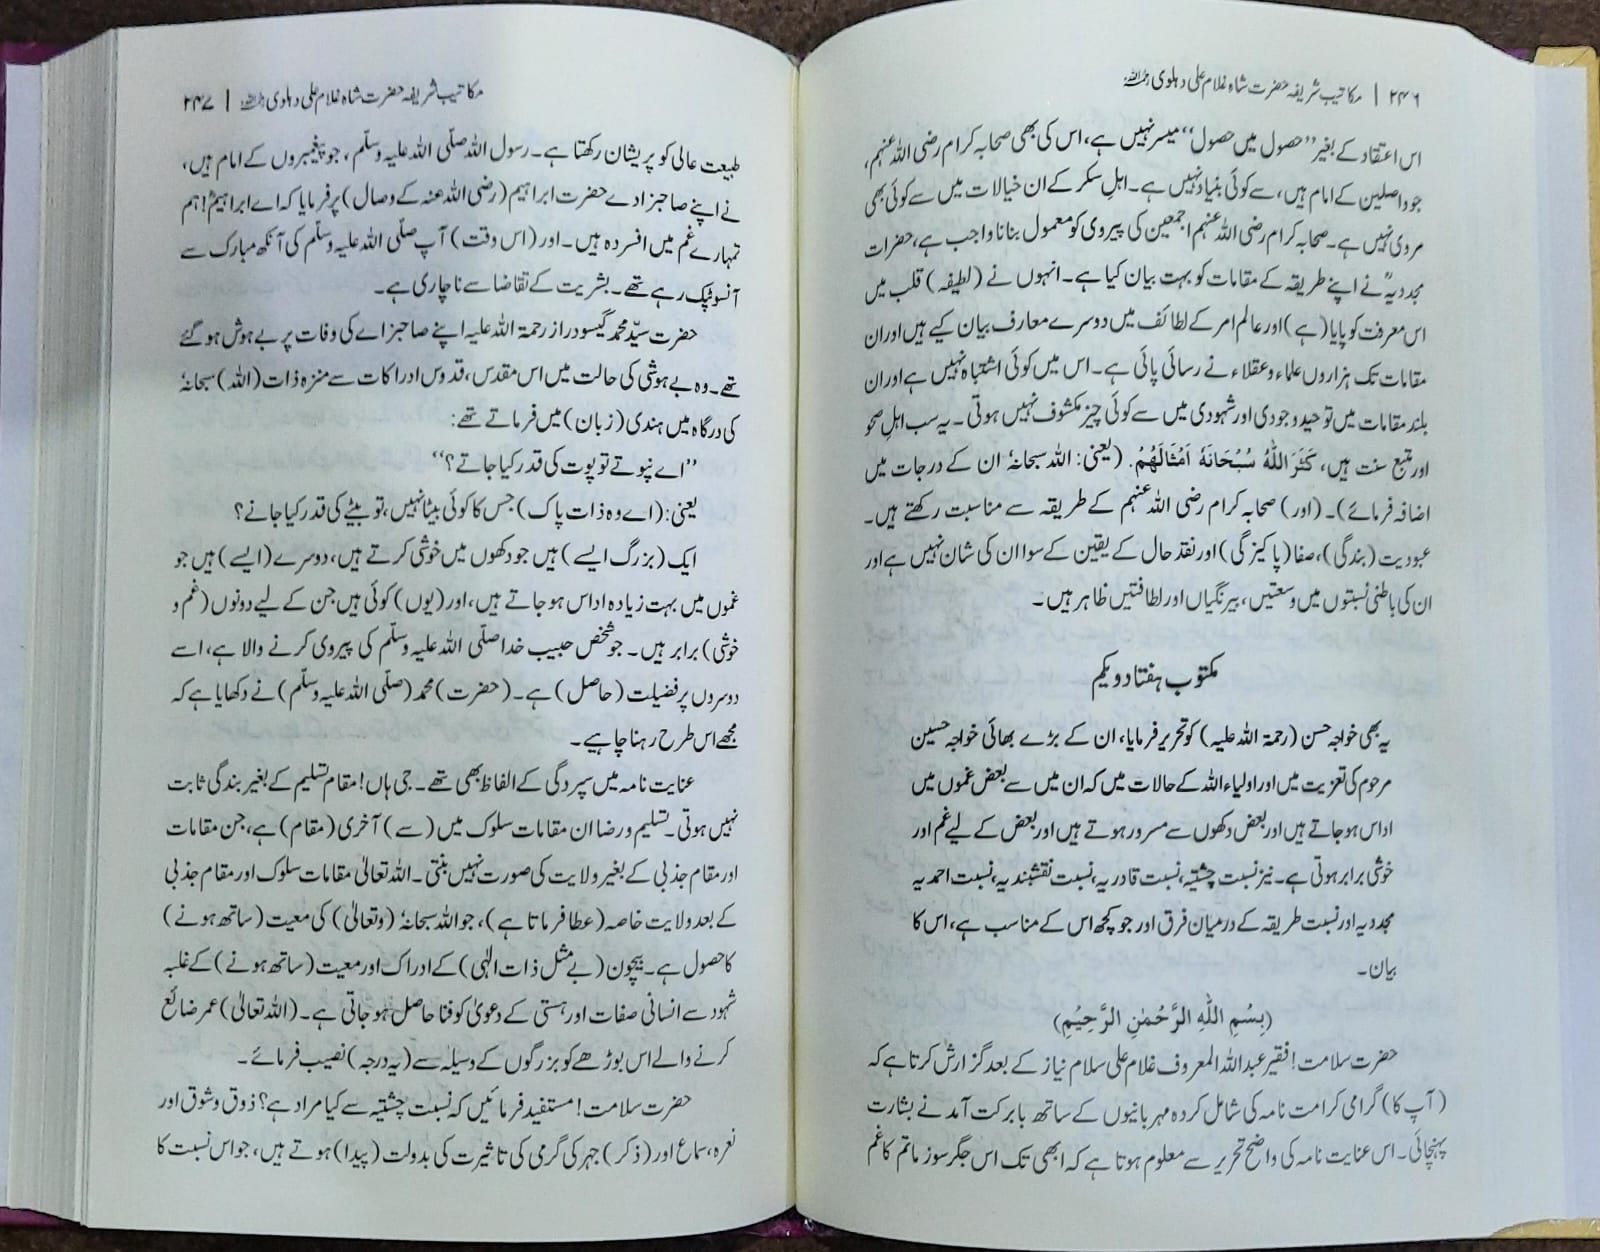 ۲۴۶ | مکاتیب شریفہ حضرت شاہ غلام علی دہلوی رحمۃ اللہ علیہ
اس اعتقاد کے بغیر ’’حصول میں حصول‘‘ میسر نہیں ہے، اس کی بھی صحابہ کرام رضی اللہ عنہم،
جو واصلین کے امام ہیں، سے کوئی بنیاد نہیں ہے۔ اہلِ سکر کے ان خیالات میں سے کوئی بھی
مروی نہیں ہے۔ صحابہ کرام رضی اللہ عنہم اجمعین کی پیروی کو معمول بنانا واجب ہے، حضرات
مجددیہؒ نے اپنے طریقہ کے مقامات کو بہت بیان کیا ہے۔ انہوں نے (لطیفہ) قلب میں
اس معرفت کو پایا (ہے) اور عالم امر کے لطائف میں دوسرے معارف بیان کیے ہیں اور ان
مقامات تک ہزاروں علماء و عقلاء نے رسائی پائی ہے۔ اس میں کوئی اشتباہ نہیں ہے اور ان
بلند مقامات میں توحید وجودی اور شہودی میں سے کوئی چیز مکشوف نہیں ہوتی۔ یہ سب اہلِ صحو
اور متبع سنت ہیں، كَثَّرَ اللّٰهُ سُبْحَانَهٗ اَمْثَالَهُمْ. (یعنی: اللہ سبحانہٗ ان کے درجات میں
اضافہ فرمائے)۔ (اور) صحابہ کرام رضی اللہ عنہم کے طریقہ سے مناسبت رکھتے ہیں۔
عبودیت (بندگی)، صفا (پاکیزگی) اور نقد حال کے یقین کے سوا ان کی شان نہیں ہے اور
ان کی باطنی نسبتوں میں وسعتیں، بیرنگیاں اور لطافتیں ظاہر ہیں۔
مکتوب ہفتاد و یکم
یہ بھی خواجہ حسن (رحمۃ اللہ علیہ) کو تحریر فرمایا، ان کے بڑے بھائی خواجہ حسین
مرحوم کی تعزیت میں اور اولیاء اللہ کے حالات میں کہ ان میں سے بعض غموں میں
اداس ہو جاتے ہیں اور بعض دکھوں سے مسرور ہوتے ہیں اور بعض کے لیے غم اور
خوشی برابر ہوتی ہے۔ نیز نسبت چشتیہ، نسبت قادریہ، نسبت نقشبندیہ، نسبت احمدیہ
مجددیہ اور نسبت طریقہ کے درمیان فرق اور جو کچھ اس کے مناسب ہے، اس کا
بیان۔
(بِسْمِ اللّٰهِ الرَّحْمٰنِ الرَّحِيْمِ)
حضرت سلامت! فقیر عبداللہ المعروف غلام علی سلام نیاز کے بعد گزارش کرتا ہے کہ
(آپ کا) گرامی کرامت نامہ کی شامل کردہ مہربانیوں کے ساتھ بابرکت آمد نے بشارت
پہنچائی۔ اس عنایت نامہ کی واضح تحریر سے معلوم ہوتا ہے کہ ابھی تک اس جگر سوز ماتم کا غم
مکاتیب شریفہ حضرت شاہ غلام علی دہلوی رحمۃ اللہ علیہ | ۲۴۷
طبیعت عالی کو پریشان رکھتا ہے۔ رسول اللہ صلّی اللہ علیہ وسلّم، جو پیغمبروں کے امام ہیں،
نے اپنے صاحبزادے حضرت ابراہیم (رضی اللہ عنہ کے وصال) پر فرمایا کہ اے ابراہیمؓ! ہم
تمہارے غم میں افسردہ ہیں۔ اور (اس وقت) آپ صلّی اللہ علیہ وسلّم کی آنکھ مبارک سے
آنسو ٹپک رہے تھے۔ بشریت کے تقاضا سے ناچاری ہے۔
حضرت سیّد محمد گیسو دراز رحمۃ اللہ علیہ اپنے صاحبزاے کی وفات پر بے ہوش ہو گئے
تھے۔ وہ بے ہوشی کی حالت میں اس مقدس، قدوس ادراکات سے منزہ ذات (اللہ) سبحانہٗ
کی درگاہ میں ہندی (زبان) میں فرماتے تھے:
’’اے نپوتے تو پوت کی قدر کیا جانے؟‘‘
یعنی: (اے وہ ذات پاک) جس کا کوئی بیٹا نہیں، تو بیٹے کی قدر کیا جانے؟
ایک (بزرگ ایسے) ہیں جو دکھوں میں خوشی کرتے ہیں، دوسرے (ایسے) ہیں جو
غموں میں بہت زیادہ اداس ہو جاتے ہیں، اور (یوں) کوئی ہیں جن کے لیے دونوں (غم و
خوشی) برابر ہیں۔ جو شخص حبیب خدا صلّی اللہ علیہ وسلّم کی پیروی کرنے والا ہے، اسے
دوسروں پر فضیلت (حاصل) ہے۔ (حضرت) محمد (صلّی اللہ علیہ وسلّم) نے دکھایا ہے کہ
مجھے اس طرح رہنا چاہیے۔
عنایت نامہ میں سپردگی کے الفاظ بھی تھے۔ جی ہاں! مقام تسلیم کے بغیر بندگی ثابت
نہیں ہوتی۔ تسلیم و رضا ان مقامات سلوک میں (سے) آخری (مقام) ہے، جن مقامات
اور مقام جذبی کے بغیر ولایت کی صورت نہیں بنتی۔ اللہ تعالیٰ مقامات سلوک اور مقام جذبی
کے بعد ولایت خاصہ (عطا فرماتا ہے)، جو اللہ سبحانہٗ (وتعالیٰ) کی معیت (ساتھ ہونے)
کا حصول ہے۔ بیچون (بے مثل ذات الٰہی) کے ادراک اور معیت (ساتھ ہونے) کے غلبہ
شہود سے انسانی صفات اور ہستی کے دعویٰ کو فنا حاصل ہو جاتی ہے۔ (اللہ تعالیٰ) عمر ضائع
کرنے والے اس بوڑھے کو بزرگوں کے وسیلہ سے (یہ درجہ) نصیب فرمائے۔
حضرت سلامت! مستفید فرمائیں کہ نسبت چشتیہ سے کیا مراد ہے؟ ذوق و شوق اور
نعرہ، سماع اور (ذکر) جہر کی گرمی کی تاثیرت کی بدولت (پیدا) ہوتے ہیں، جو اس نسبت کا